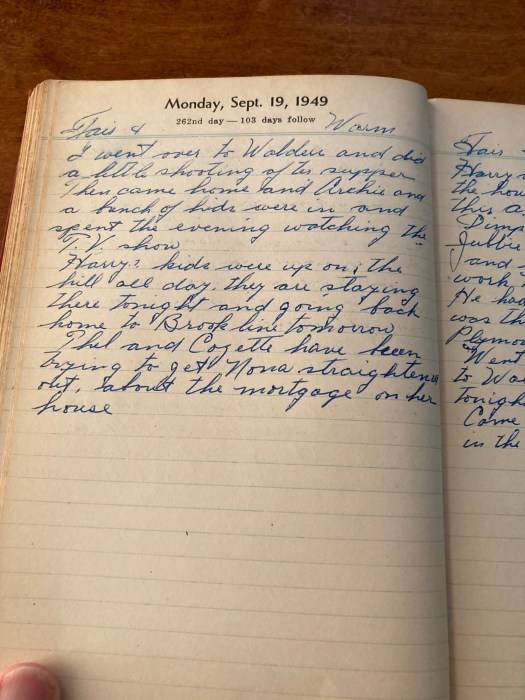 Monday, Sept. 19, 1949
262nd day — 103 days follow
Fair & Warm
I went over to Walden and did
a little shooting after supper
Then came home and Archie and
a bunch of kids were in and
spent the evening watching the
T.V. show
Harrys kids were up on the
hill all day. they are staying
there tonight and going back
home to Brookline tomorrow
Phil and Cozette have been
trying to get Nona straightene
out, about the mortgage on her
house
Fair
Harry
the hou
this a
Dimp
Jubbie
and
work
He ha
was th
Plymou
Went
to Wa
tonigh
Came
in the